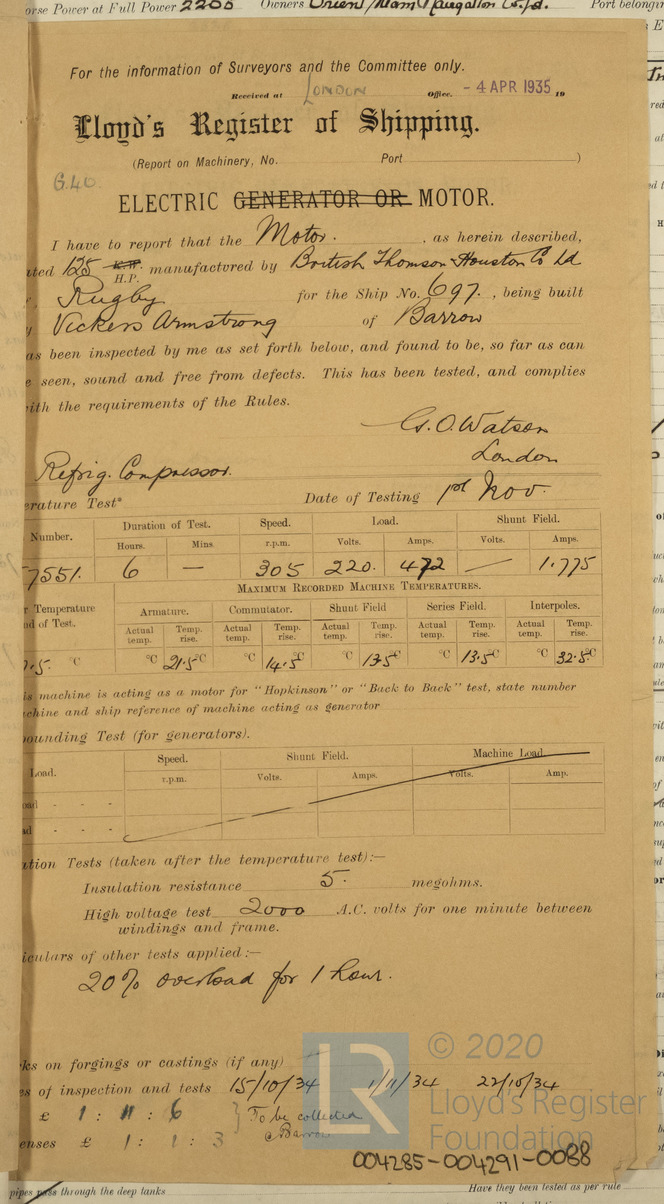 orse Power at Full Power 2200 Owners Orient Steam Navigation Co. Ld. Port belongin
For the information of Surveyors and the Committee only.
Received at LONDON Office, - 4 APR 1935 19
Lloyd's Register of Shipping.
(Report on Machinery, No. Port )
G.40.
ELECTRIC GENERATOR OR MOTOR.
I have to report that the Motor. , as herein described,
ated 125 K.W. H.P. manufactured by British Thomson-Houston Co Ld
Rugby for the Ship No. 697. , being built
y Vickers Armstrong of Barrow
as been inspected by me as set forth below, and found to be, so far as can
e seen, sound and free from defects. This has been tested, and complies
ith the requirements of the Rules.
G. O. Watson
London
Refrig. Compressor.
erature Test* Date of Testing 1st Nov.
Number. Duration of Test. Speed. Load. Shunt Field.
Hours. Mins r.p.m. Volts. Amps. Volts. Amps.
7551. 6 — 305 220. 472 — 1.775
MAXIMUM RECORDED MACHINE TEMPERATURES.
r Temperature Armature. Commutator. Shunt Field Series Field. Interpoles.
nd of Test. Actual temp. Temp. rise. Actual temp. Temp. rise. Actual temp. Temp. rise. Actual temp. Temp. rise. Actual temp. Temp. rise.
.5. °C °C 21.5°C °C 14.5°C °C 13.5°C °C 13.5°C °C 32.5°C
is machine is acting as a motor for "Hopkinson" or "Back to Back" test, state number
chine and ship reference of machine acting as generator
ounding Test (for generators).
Load. Speed. Shunt Field. Machine Load.
r.p.m. Volts. Amps. Volts. Amp.
oad - - -
ad - - -
ation Tests (taken after the temperature test):—
Insulation resistance 5. megohms.
High voltage test 2000 A.C. volts for one minute between
windings and frame.
iculars of other tests applied:—
20% overload for 1 hour.
ks on forgings or castings (if any)
es of inspection and tests 15/10/34 1/11/34 22/10/34
£ 1 : 11 : 6 } To be collected
enses £ 1 : 1 : 3 Barrow
© 2020
LR
Lloyd's Register
Foundation
004285-004291-0088
pipes pass through the deep tanks Have they been tested as per rule